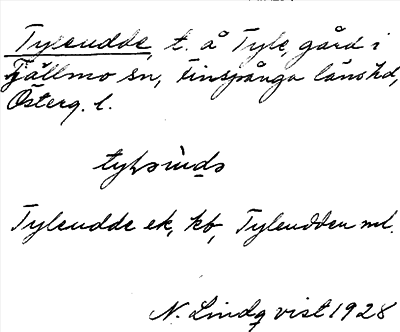 Tyleudde, t. å Tyle, gård i
Tjällmo sn, Finspånga läns hd,
Österg. l.
Tyleudde ek, kb, Tyleudden ml.
N. Lindqvist 1928